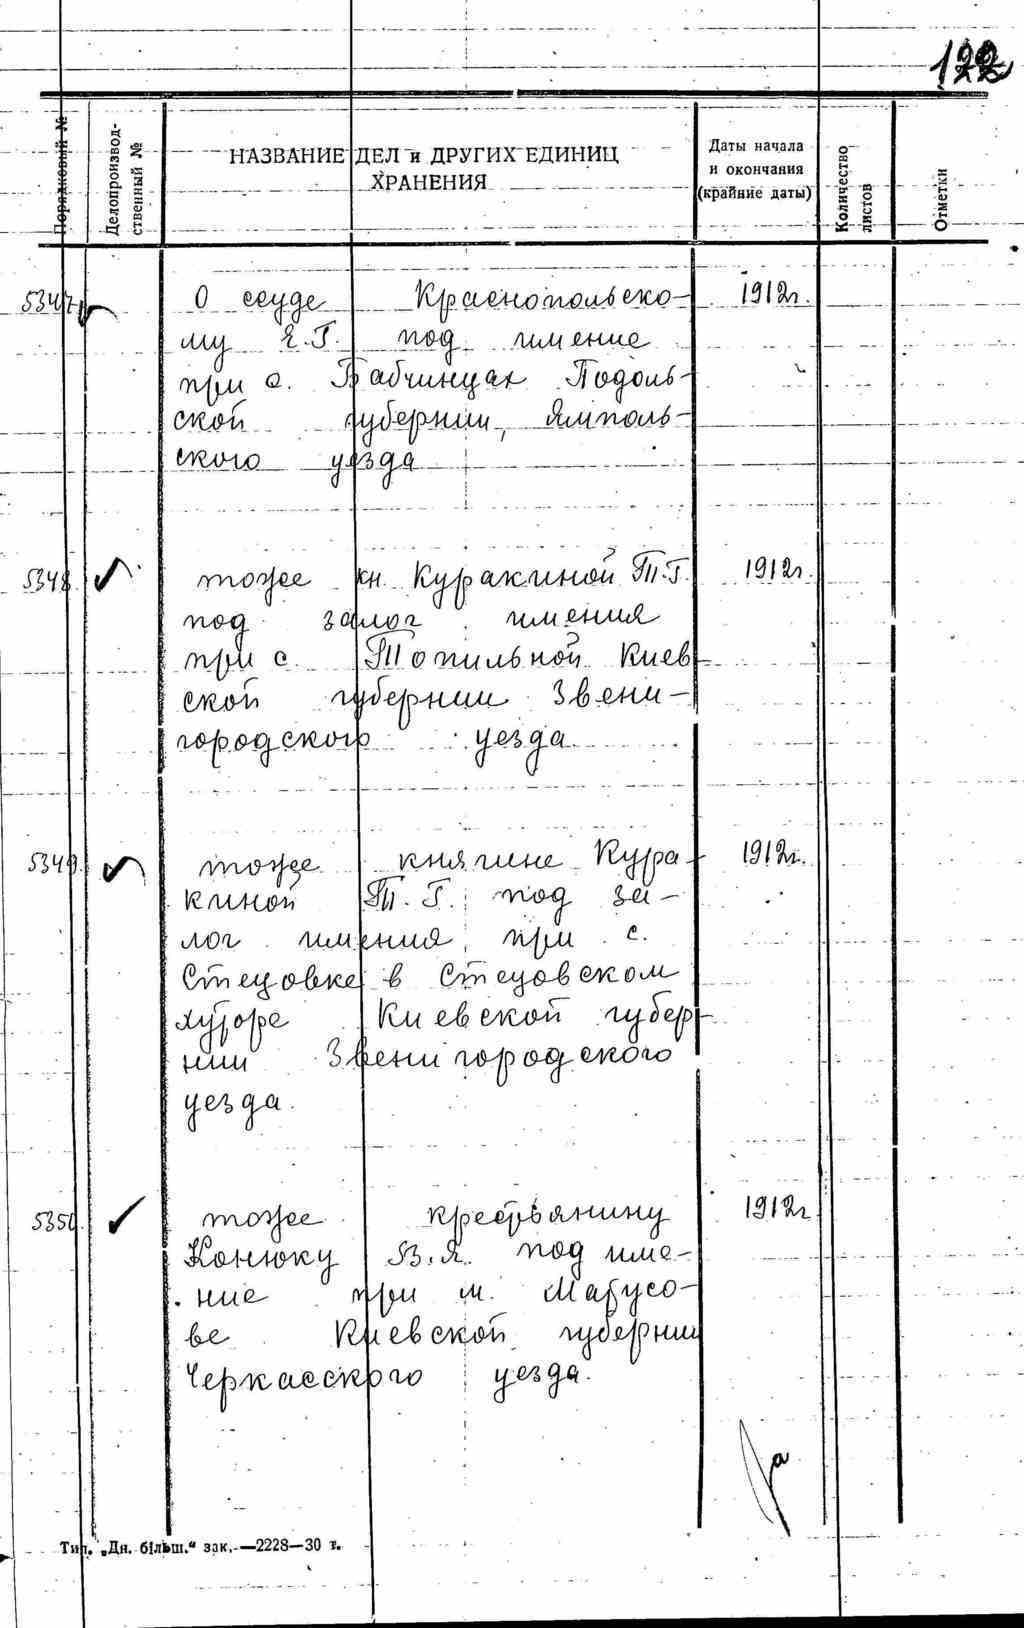 122
Порядковый №
Делопроизвод-
ственный №
НАЗВАНИЕ ДЕЛ и ДРУГИХ ЕДИНИЦ
ХРАНЕНИЯ
Даты начала
и окончания
(крайние даты)
Количество
листов
Отметки
5347 О ссуде Краснопольско- 1912г.
му Е.Г. под имение
при с. Бабчинцах Подоль-
ской губернии, Ямполь-
ского уезда
5348 тоже кн. Куракиной Т.Г. 1912г.
под залог имения
при с. Топильной Киев
ской губернии Звени-
городского уезда
5349. тоже княгине Кура- 1912г.
киной Т.Г. под за-
лог имения при с.
Стецовке в Стецовском
хуторе Киевской губер-
нии Звенигородского
уезда.
5350. тоже крестьянину 1912г
Конюку В.Я. под име-
ние при м. Матусо-
ве Киевской губернии
Черкасского уезда.
Тип. „Дн. більш.“ зак.—2228—30 т.